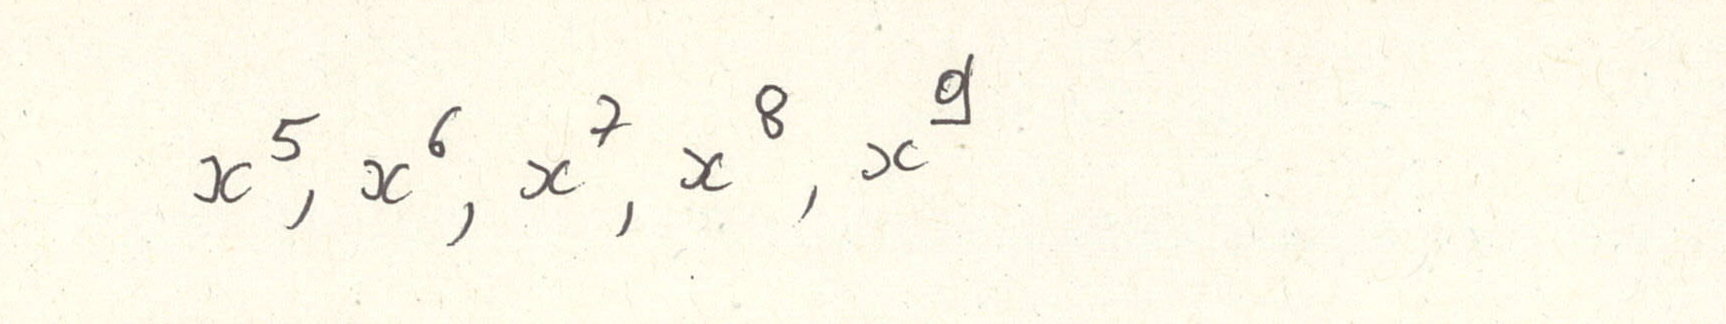 x⁵, x⁶, x⁷, x⁸, x⁹